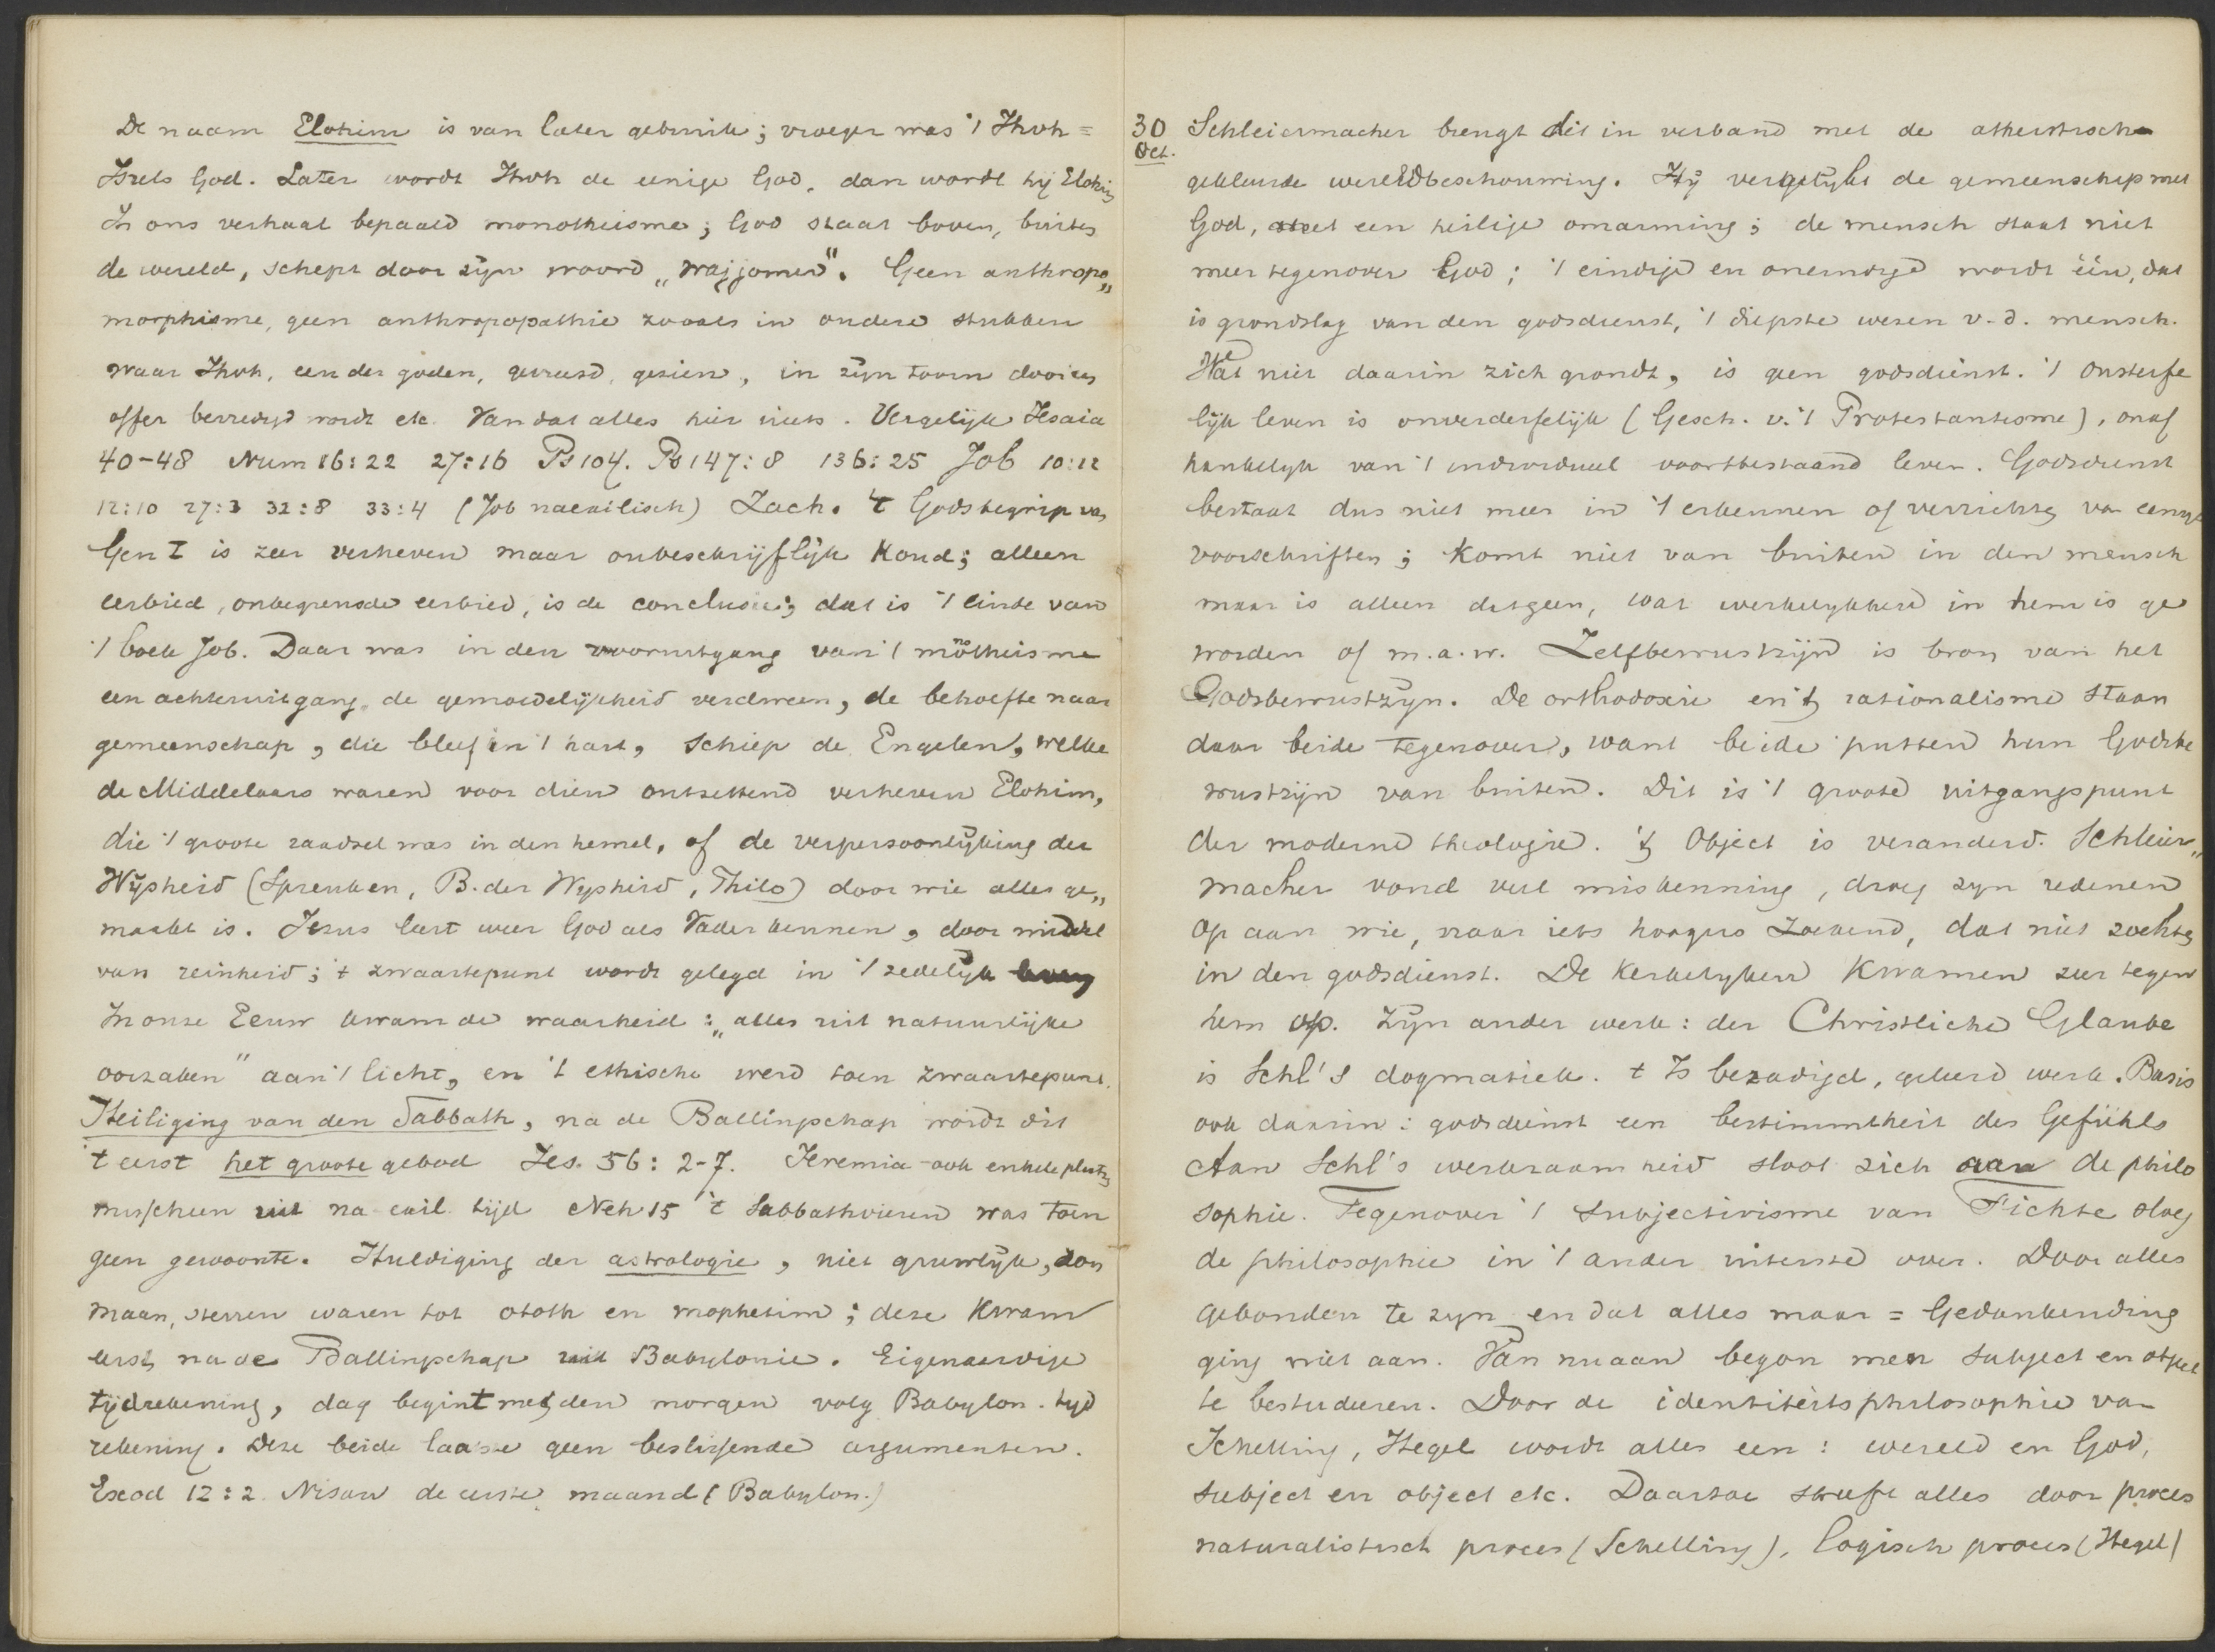 De naam Elohim is van later gebruik; vroeger was 't Jhvh =
Isrels God. Later wordt Jhvh de eenige God, dan wordt hij Elohim
In ons verhaal bepaald monotheisme; God staat boven, buiten
de wereld, schept door zijn woord „wajjomer". Geen anthropo„
morphisme, geen anthropopathie zooals in oudere stukken
waar Jhvh, een der goden, gevreesd, gezien, in zijn toorn door een
offer bevredigd wordt etc. Van dat alles hier niets. Vergelijk Jesaia
40-48 Num 16:22 27:16 Ps 104. Ps 147:8 136:25 Job 10:12
12:10 27:3 32:8 33:4 (Job naexilisch) Zach. 't Godsbegrip van
Gen I is zeer verheven maar onbeschrijflijk koud; alleen
eerbied, onbegrensde eerbied, is de conclusie; dat is 't einde van
't boek Job. Daar was in den vooruitgang van 't monotheisme
een achteruitgang, de gemoedelijkheid verdween, de behoefte naar
gemeenschap, die bleef in 't hart, schiep de Engelen, welke
de Middelaars waren voor dien ontzettend verheven Elohim,
die 't groote raadsel was in den hemel, of de verpersoonlijking der
Wijsheid (Spreuken, B. der Wijsheid, Philo) door wie alles ge„
maakt is. Jezus leert weer God als Vader kennen, door middel
van reinheid; 't zwaartepunt wordt gelegd in 't zedelijk leven
In onze Eeuw kwam de waarheid: „alles uit natuurlijke
oorzaken" aan 't licht, en 't ethische werd toen zwaartepunt.
Heiliging van den Sabbath, na de Ballingschap wordt dit
't eerst het groote gebod Jes. 56: 2-7. Jeremia ook enkele plaatsen
misschien uit na-exil. tijd Neh 15 't Sabbathvieren was toen
geen gewoonte. Huldiging der astrologie, niet gruwlijk, zon
maan, sterren waren tot ototh en mophetim; deze kwam
eerst na de Ballingschap uit Babylonie. Eigenaardige
tijdrekening, dag begint met den morgen volg Babylon. tijd
rekening. Deze beide laatste geen beslissende argumenten.
Exod 12:2. Nisan de eerste maand (Babylon.)
30
Oct.
Schleiermacher brengt dit in verband met de atheistisch
gekleurde wereldbeschouwing. Hij vergelijkt de gemeenschap met
God, met een heilige omarming; de mensch staat niet
meer tegenover God; 't eindige en oneindige wordt één, dat
is grondslag van den godsdienst, 't diepste wezen v. d. mensch.
Wat niet daarin zich grondt, is geen godsdienst. 't Onsterfe
lijk leven is onverderfelijk (Gesch. v. 't Protestantisme), onaf
hankelijk van 't individueel voortbestaand leven. Godsdienst
bestaat dus niet meer in 't erkennen of verrichten van eenige
voorschriften; komt niet van buiten in den mensch
maar is alleen datgeen, wat werkelijkheid in hem is ge
worden of m.a.w. Zelfbewustzijn is bron van het
Godsbewustzijn. De orthodoxie en 't rationalisme staan
daar beide tegenover, want beide putten hun Godsbe
wustzijn van buiten. Dit is 't groote uitgangspunt
der moderne theologie. 't Object is veranderd. Schleier„
macher vond veel miskenning, droeg zijn redenen
op aan wie, naar iets hoogers zoekend, dat niet zochten
in den godsdienst. De kerkelijken kwamen zeer tegen
hem op. Zijn ander werk: der Christliche Glaube
is Schl's dogmatiek. t Is bezadigd, geleerd werk. Basis
ook daarin: godsdienst een bestimmtheit des Gefühls
Aan Schl's werkzaamheid sloot zich aan de philo
sophie. Tegenover 't subjectivisme van Fichte sloeg
de philosophie in 't ander uiterste over. Door alles
gebonden te zijn en dat alles maar = Gedankending
ging niet aan. Van nu aan begon men subject en object
te bestudeeren. Door de identiteitsphilosophie van
Schelling, Hegel wordt alles een: wereld en God,
subject en object etc. Daartoe streeft alles door proces
naturalistisch proces (Schelling), logisch proces (Hegel)